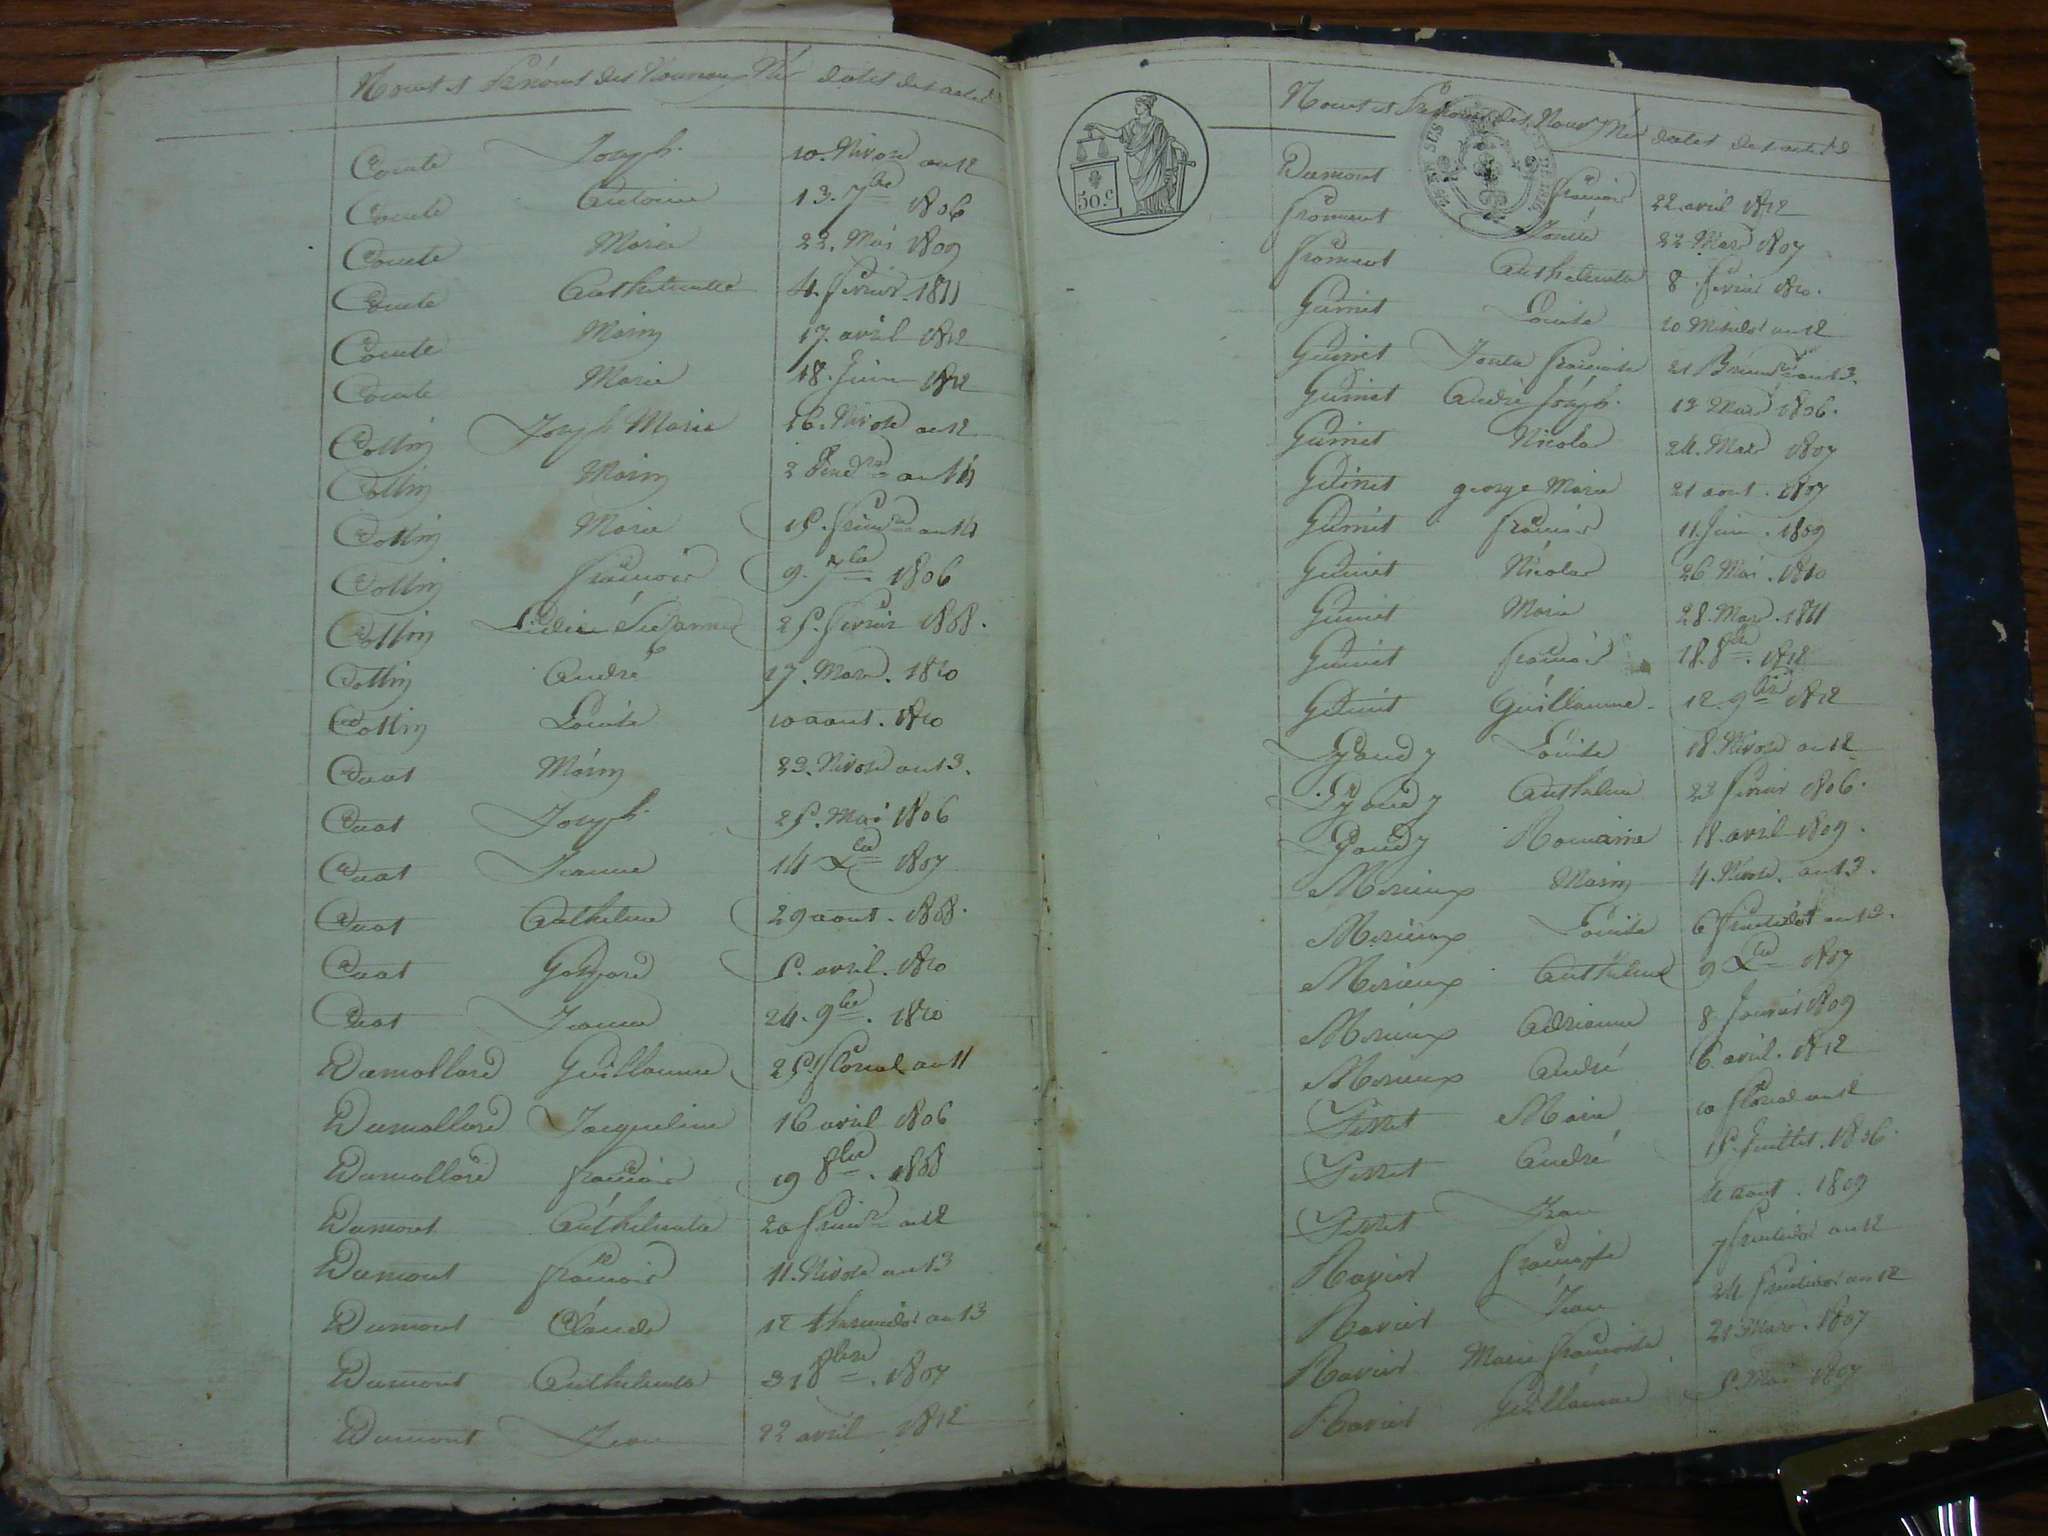 Noms et Prénoms des Nouveaux Nés dates des actes
Comte Joseph 10. Nivose an 12
Comte Antoine 13. 7bre 1806
Comte Marie 22. Mai 1809
Comte Anthelmette 4. fevrier. 1811
Comte Marin 17. avril 1812
Comte Marie 18. Juin 1812
Cottin Joseph Marie 16. Nivose an 12
Cottin Marin 2 vend.re an 14
Cottin Marie 15. frim.re an 14
Cottin francois 9. 7bre 1806
Cottin Suzanne 25. fevrier 1808.
Cottin André 17. Mars. 1810
Cottin Louise 10 aout. 1810
Cuat Marin 23. Nivose an 13.
Cuat Joseph 25. Mai 1806
Cuat Jeanne 14 Xbre 1807
Cuat Anthelme 29 aout. 1808.
Cuat Gaspard 5. avril. 1810
Cuat Jeanne 24. 9bre. 1810
Dumollard Guillaume 25. floreal an 11
Dumollard Jacqueline 16 avril 1806
Dumollard francois 19 8bre. 1808
Dumont Anthelmette 20 frim.re an 12
Dumont francois 11. Nivose an 13
Dumont Claude 12 thermidor an 13
Dumont Anthelmette 31 8bre. 1807
Dumont Jean 22 avril 1812
50.c
Noms et Prénoms des Nouv. Nés dates des actes
Dumont francois 22 avril 1812
froment 22 Mars 1807
froment Anthelmette 8 fevrier 1810.
Guinet Louise 10 Messidor an 12
Guinet francoise 21 Brum.re an 13.
Guinet André Joseph 19 Mars 1806.
Guinet Nicolas 24. Mars 1807
Guinet george Marie 21 aout. 1807
Guinet francois 11. Juin. 1809
Guinet Nicolas 26 Mai. 1810
Guinet Marie 28. Mars. 1811
Guinet francois 18. 8bre. 1812
Guinet Guillaume 12 9bre 1812
Goudy Louise 18 Nivose an 12
Goudy Anthelme 23 fevrier 1806.
Goudy Romaine 18. avril 1809.
Merieux Marin 4. Nivose. an 13.
Merieux Louise 6 fructidor an 13.
Merieux Anthelme 9 Xbre 1807
Merieux Adrienne 8 Janvier 1809
Merieux André 6. avril. 1812
Pittet Marie 10 floreal an 12
Pittet André 15. Juillet. 1806.
Pittet Jean 4 aout. 1809
Ravier francoise 7 fructidor an 12
Ravier Jean 24 fructidor an 12
Ravier Marie francoise 21 Mars. 1807
Ravier Guillaume 5. Mai 1807